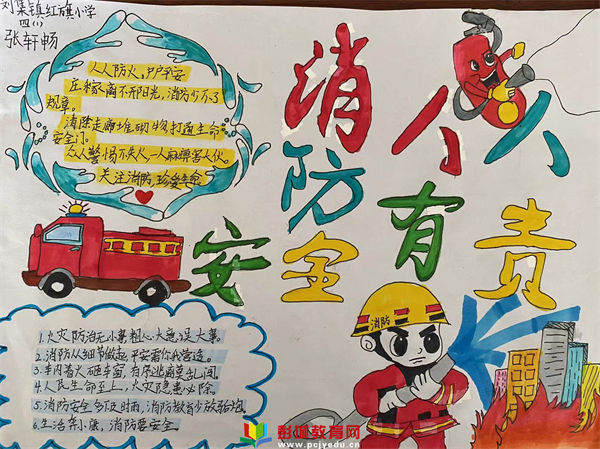 刘集镇红旗小学
四(1)
张轩畅
消防安全
人人有责
人人防火,户户平安
庄稼离不开阳光,消防少不了
规章。
清除走廊堆砌物,打通生命
安全门。
众人警惕不失火,一人麻痹害人伙。
关注消防,珍爱生命
消防
1.火灾防治无小事粗心大意误大事。
2.消防从细节做起 平安需你我营造。
3.车用着火砸车窗,有序逃离莫乱闯
4.人民生命至上,火灾隐患必除。
5.消防安全多及时雨,消防教育少放马后炮
6.生活奔小康,消防要安全。
彭城教育网
www.pcjyedu.cn